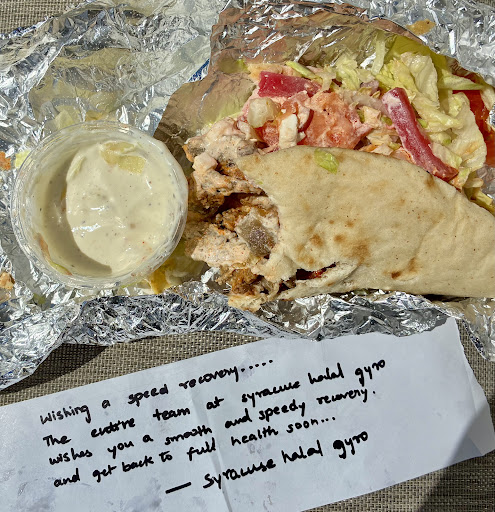 Wishing a speed recovery.....
The entire team at syracuse halal gyro
wishes you a smooth and speedy recovery.
and get back to full health soon...
— Syracuse halal gyro